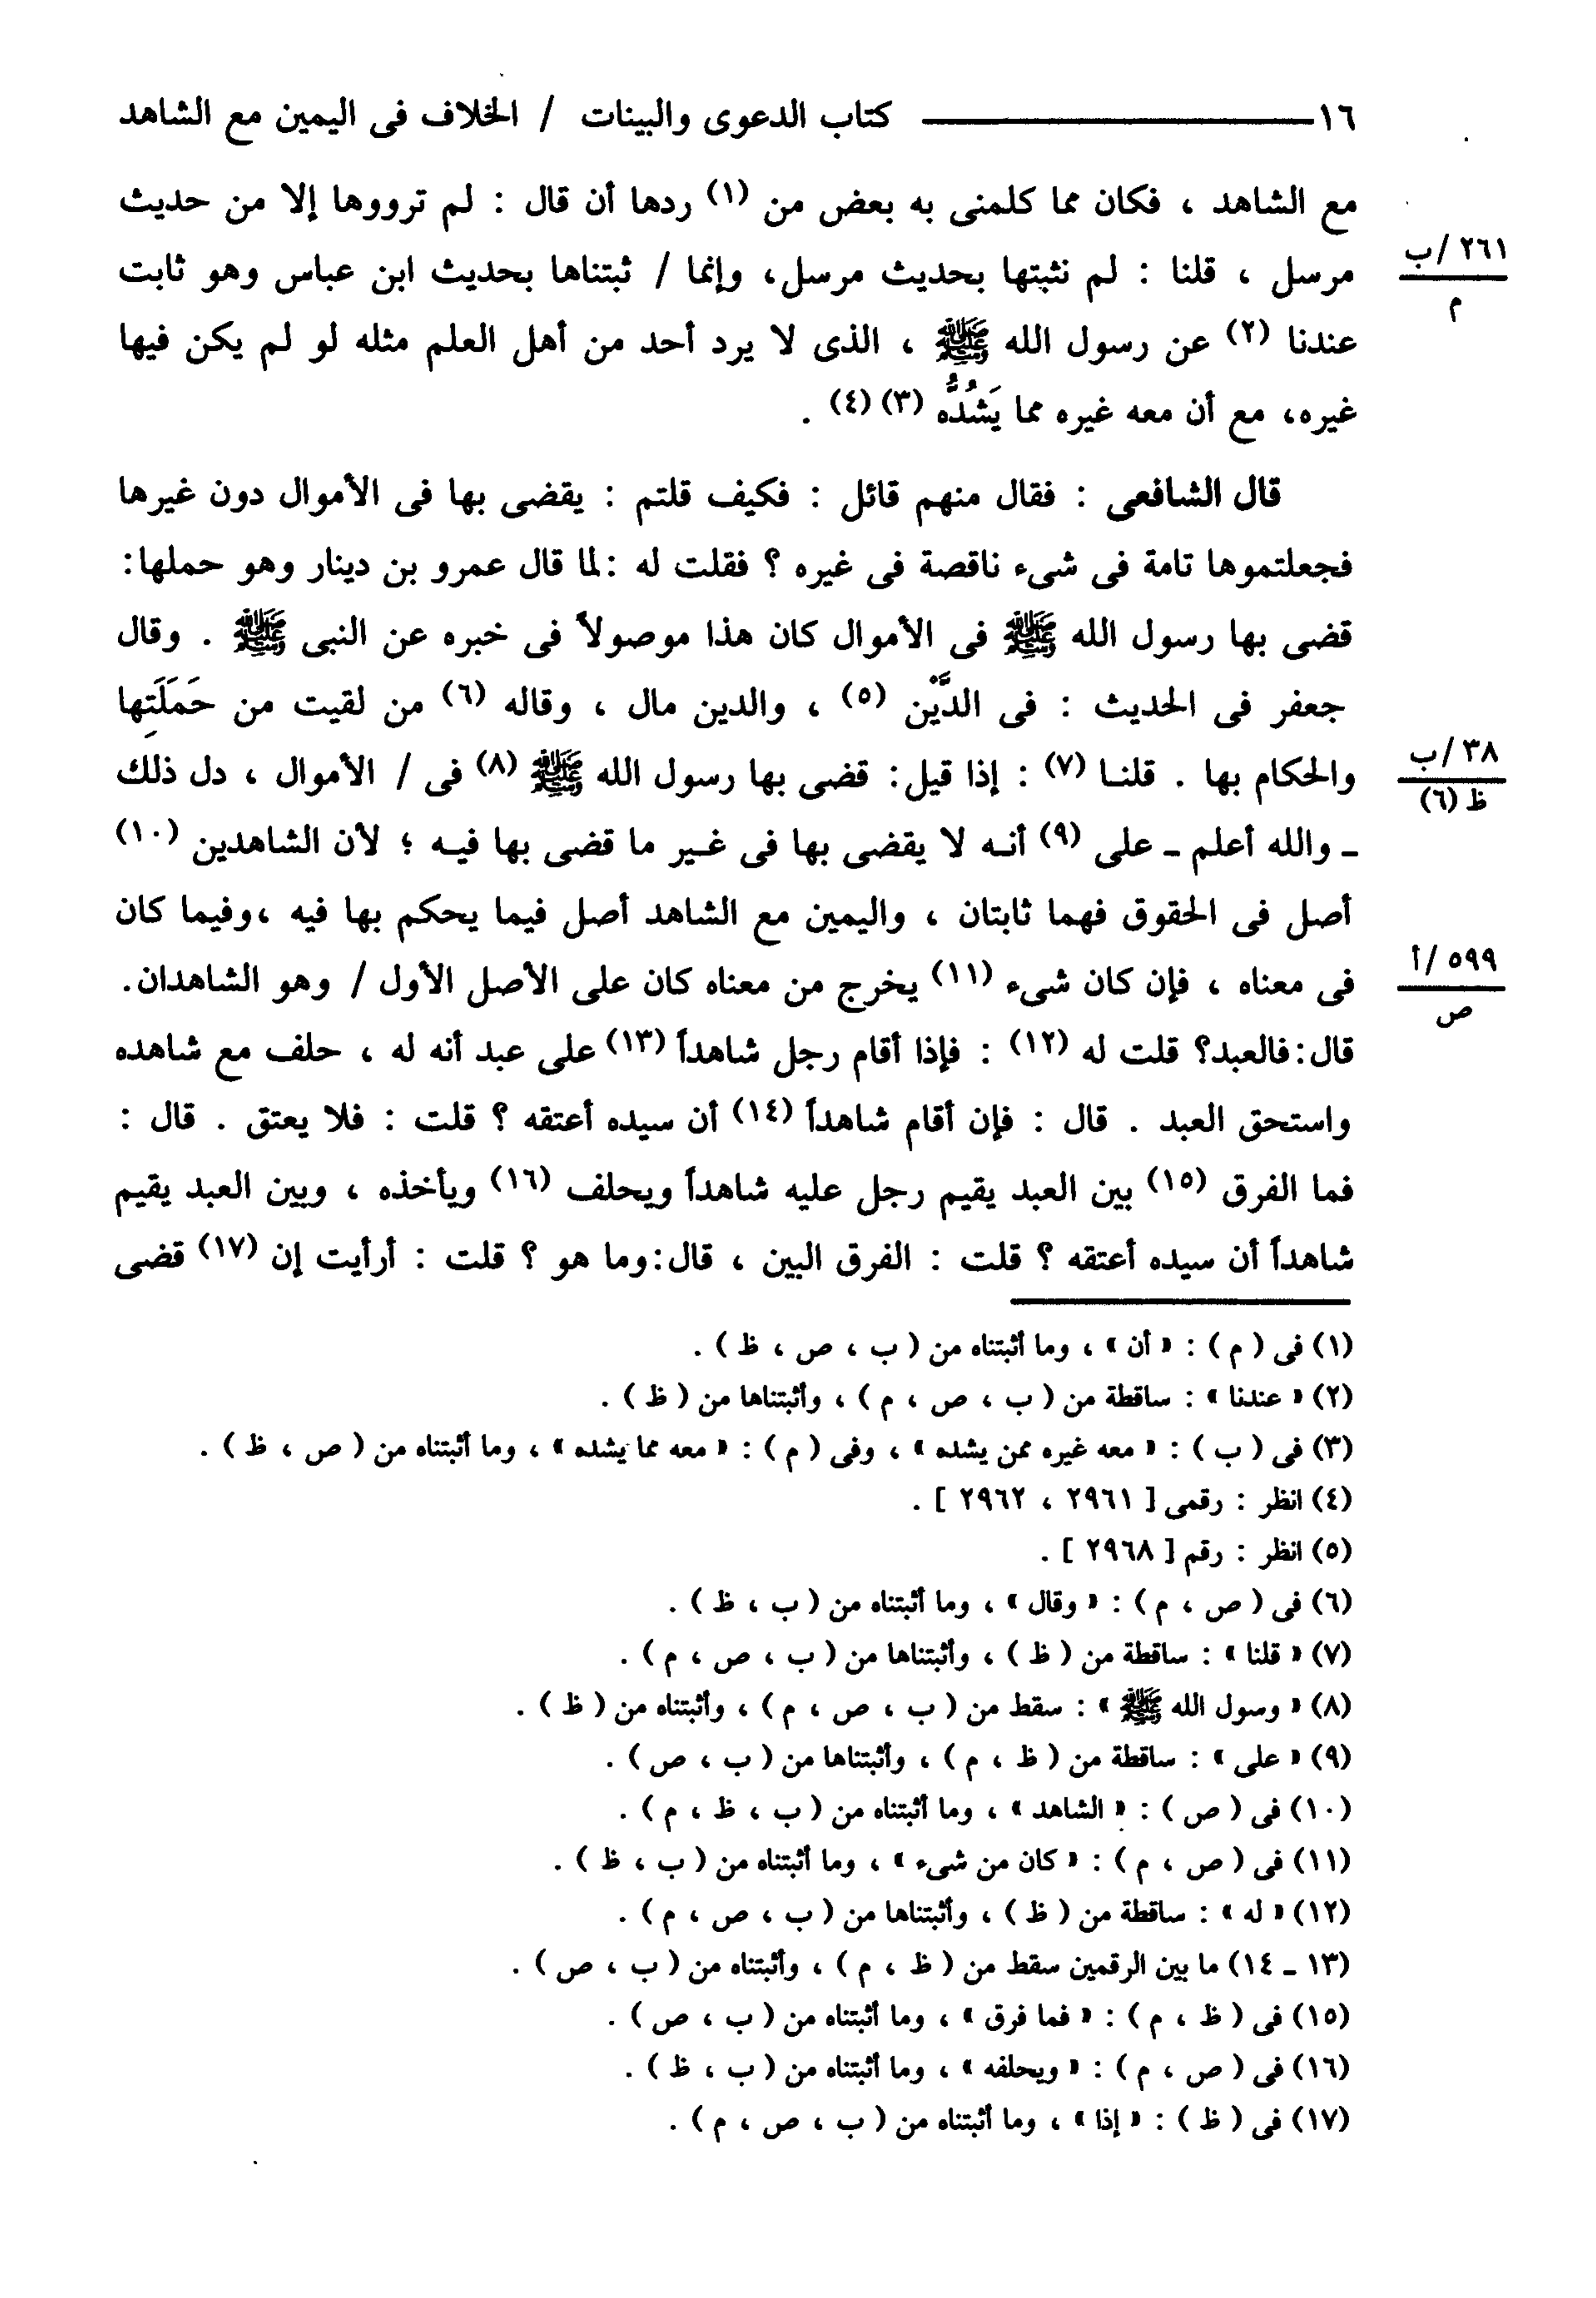 ١٦ ــــــــــ كتاب الدعوى والبينات / الخلاف فى اليمين مع الشاهد
مع الشاهد ، فكان مما كلمنى به بعض من (١) ردها أن قال : لم ترووها إلا من حديث
مرسل ، قلنا : لم نثبتها بحديث مرسل، وإنما / ثبتناها بحديث ابن عباس وهو ثابت
٢٦١/ب
م
عندنا (٢) عن رسول الله ﷺ ، الذى لا يرد أحد من أهل العلم مثله لو لم يكن فيها
غيره، مع أن معه غيره مما يَشُدُّه (٣) (٤) .
قال الشافعى : فقال منهم قائل : فكيف قلتم : يقضى بها فى الأموال دون غيرها
فجعلتموها تامة فى شىء ناقصة فى غيره ؟ فقلت له : لما قال عمرو بن دينار وهو حملها:
قضى بها رسول الله ﷺ فى الأموال كان هذا موصولاً فى خبره عن النبى ﷺ . وقال
جعفر فى الحديث : فى الدَّيْن (٥) ، والدين مال ، وقاله (٦) من لقيت من حَمَلَتِها
والحكام بها . قلنـا (٧) : إذا قيل: قضى بها رسول الله ﷺ (٨) فى / الأموال ، دل ذلك
٣٨/ب
ظ (٦)
ـ والله أعلم ـ على (٩) أنـه لا يقضى بها فى غـير ما قضى بها فيـه ؛ لأن الشاهدين (١٠)
أصل فى الحقوق فهما ثابتان ، واليمين مع الشاهد أصل فيما يحكم بها فيه ،وفيما كان
فى معناه ، فإن كان شىء (١١) يخرج من معناه كان على الأصل الأول / وهو الشاهدان.
٥٩٩/أ
ص
قال:فالعبد؟ قلت له (١٢) : فإذا أقام رجل شاهداً (١٣) على عبد أنه له ، حلف مع شاهده
واستحق العبد . قال : فإن أقام شاهداً (١٤) أن سيده أعتقه ؟ قلت : فلا يعتق . قال :
فما الفرق (١٥) بين العبد يقيم رجل عليه شاهداً ويحلف (١٦) ويأخذه ، وبين العبد يقيم
شاهداً أن سيده أعتقه ؟ قلت : الفرق البين ، قال:وما هو ؟ قلت : أرأيت إن (١٧) قضى
(١) فى ( م ) : « أن » ، وما أثبتناه من ( ب ، ص ، ظ ) .
(٢) « عندنا » : ساقطة من ( ب ، ص ، م ) ، وأثبتناها من ( ظ ) .
(٣) فى ( ب ) : « معه غيره ممن يشده » ، وفى ( م ) : « معه مما يشده » ، وما أثبتناه من ( ص ، ظ ) .
(٤) انظر : رقمى [ ٢٩٦١ ، ٢٩٦٢ ] .
(٥) انظر : رقم [ ٢٩٦٨ ] .
(٦) فى ( ص ، م ) : « وقال » ، وما أثبتناه من ( ب ، ظ ) .
(٧) « قلنا » : ساقطة من ( ظ ) ، وأثبتناها من ( ب ، ص ، م ) .
(٨) « وسول الله ﷺ » : سقط من ( ب ، ص ، م ) ، وأثبتناه من ( ظ ) .
(٩) « على » : ساقطة من ( ظ ، م ) ، وأثبتناها من ( ب ، ص ) .
(١٠) فى ( ص ) : « الشاهد » ، وما أثبتناه من ( ب ، ظ ، م ) .
(١١) فى ( ص ، م ) : « كان من شىء » ، وما أثبتناه من ( ب ، ظ ) .
(١٢) « له » : ساقطة من ( ظ ) ، وأثبتناها من ( ب ، ص ، م ) .
(١٣ ـ ١٤) ما بين الرقمين سقط من ( ظ ، م ) ، وأثبتناه من ( ب ، ص ) .
(١٥) فى ( ظ ، م ) : « فما فرق » ، وما أثبتناه من ( ب ، ص ) .
(١٦) فى ( ص ، م ) : « ويحلفه » ، وما أثبتناه من ( ب ، ظ ) .
(١٧) فى ( ظ ) : « إذا » ، وما أثبتناه من ( ب ، ص ، م ) .